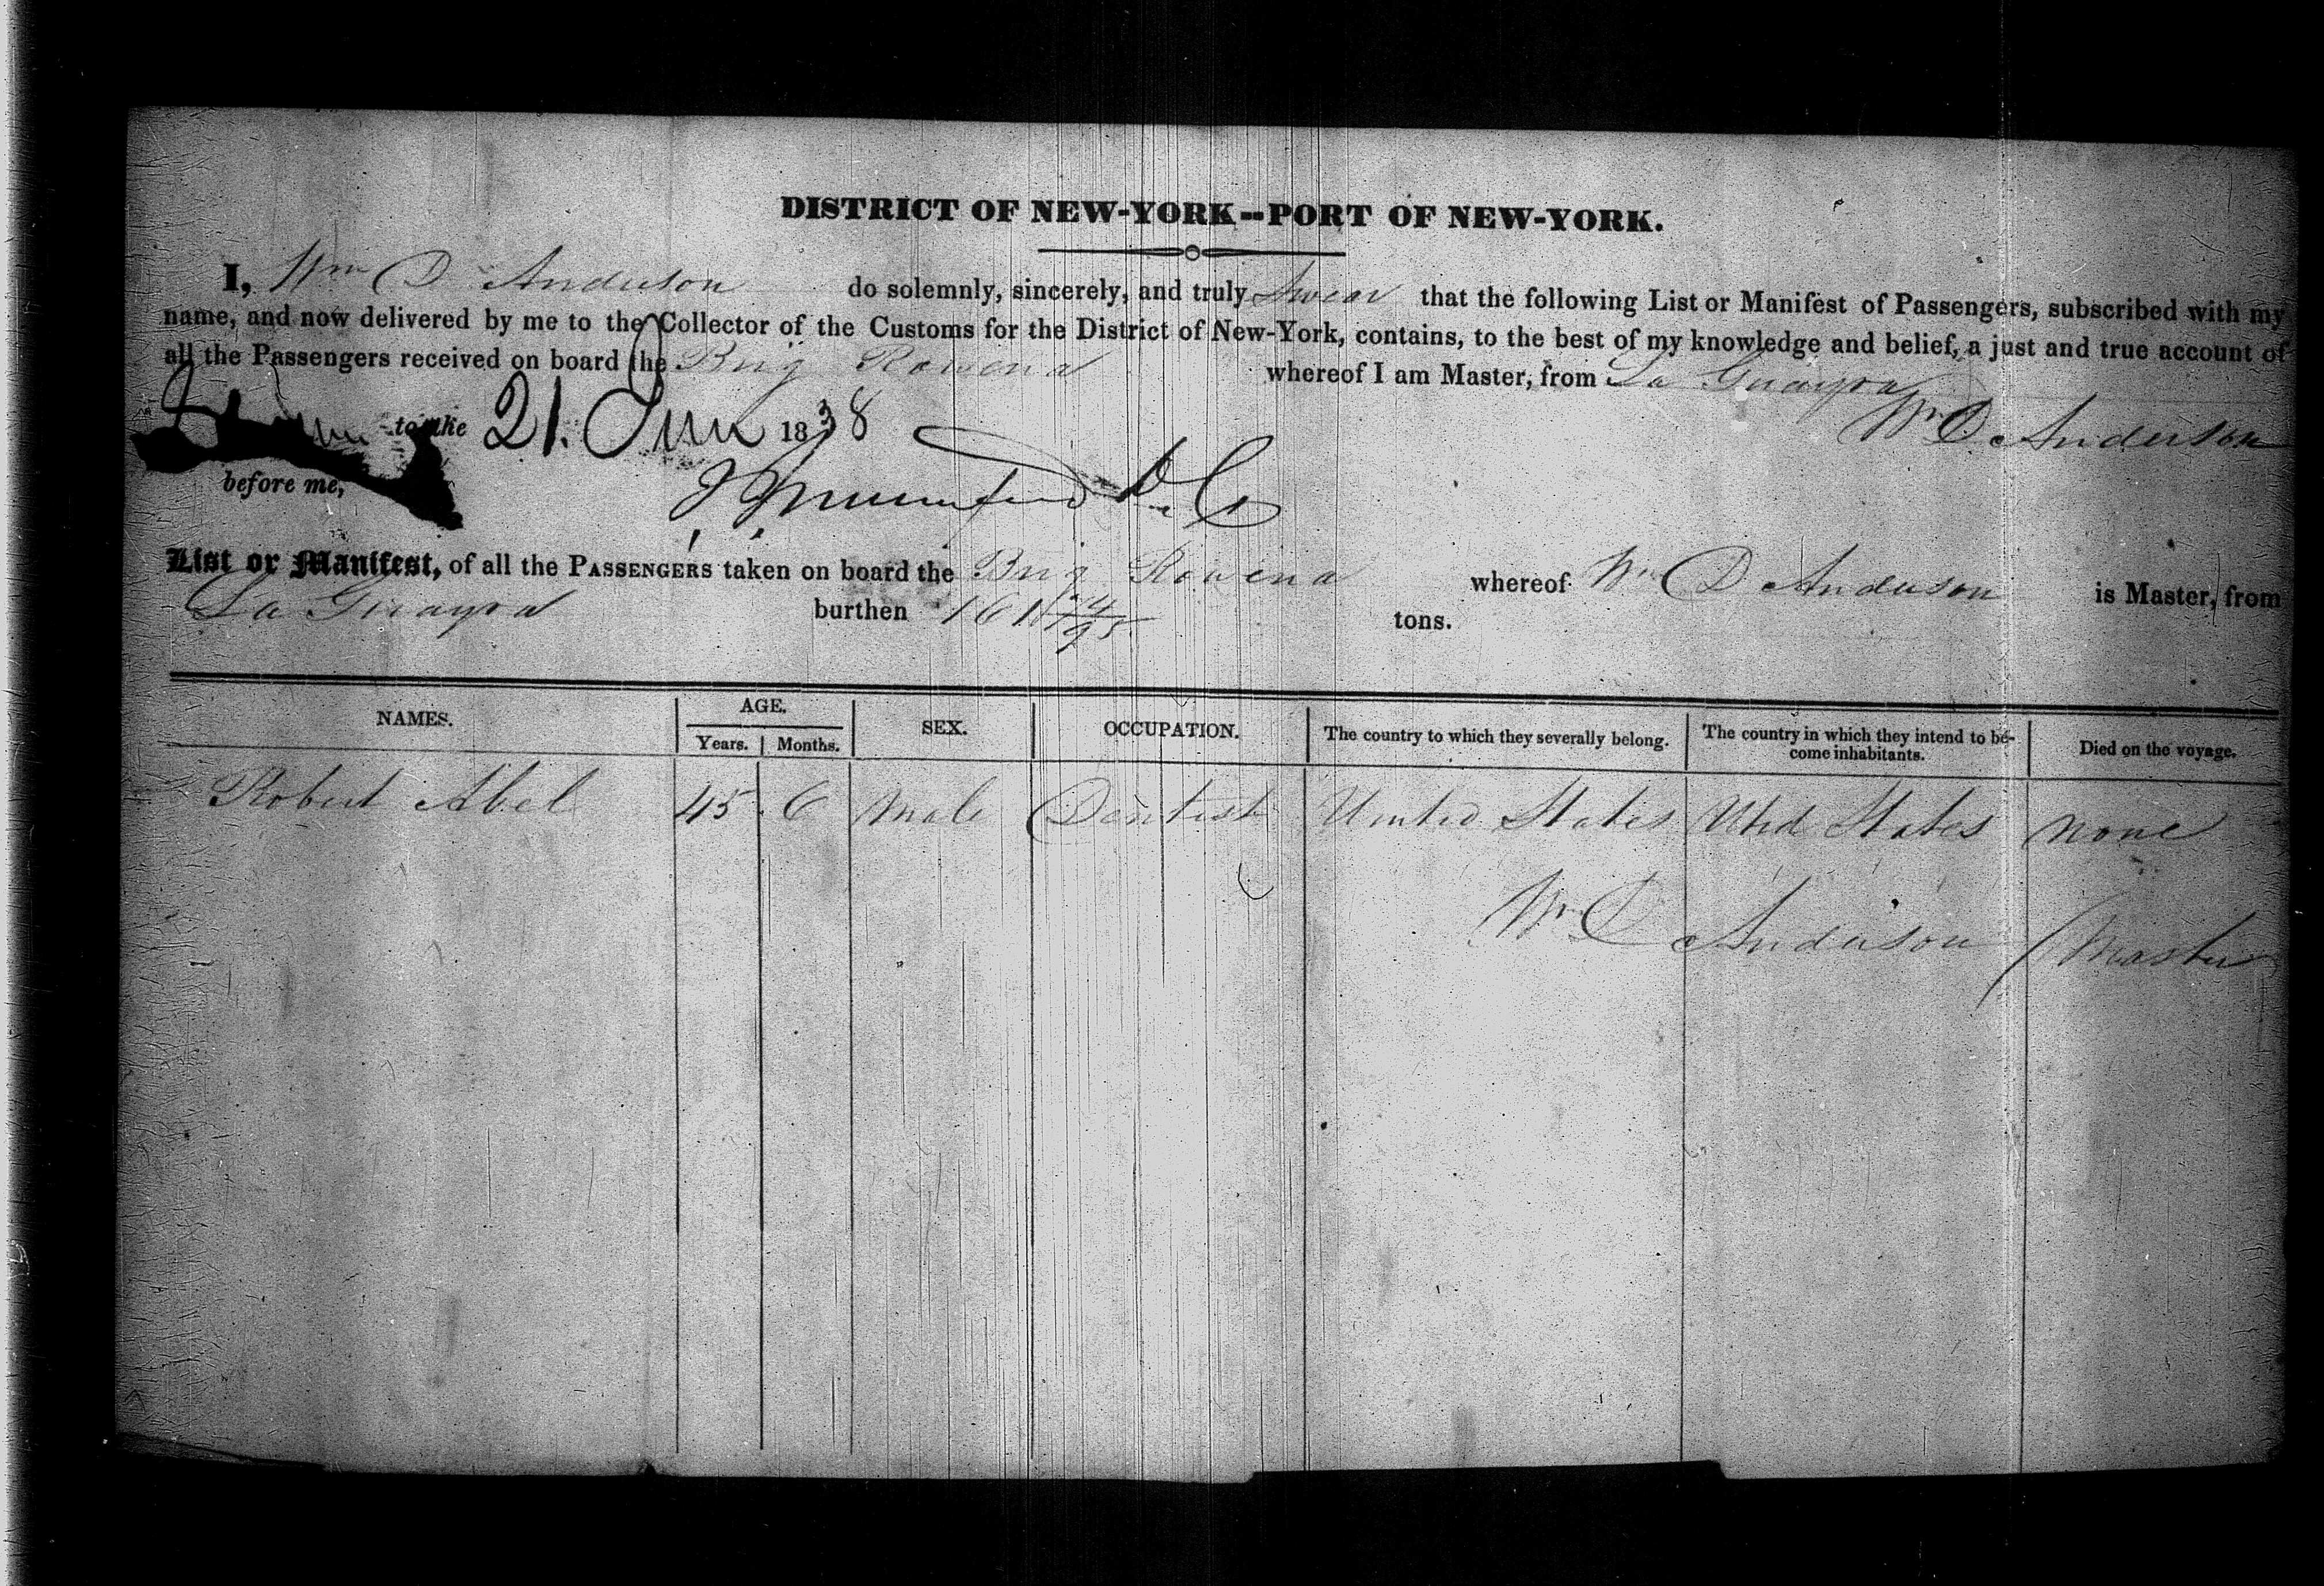 DISTRICT OF NEW-YORK--PORT OF NEW-YORK.
I, Wm D Anderson do solemnly, sincerely, and truly Swear that the following List or Manifest of Passengers, subscribed with my
name, and now delivered by me to the Collector of the Customs for the District of New-York, contains, to the best of my knowledge and belief, a just and true account of
all the Passengers received on board the Brig Rowena whereof I am Master, from La Guayra
Wm D Anderson
to the 21. June 1838
before me,
List or Manifest, of all the PASSENGERS taken on board the Brig Rowena whereof Wm D Anderson is Master, from
La Guayra burthen 161 tons.
NAMES. AGE. Years. Months. SEX. OCCUPATION. The country to which they severally belong. The country in which they intend to be-come inhabitants. Died on the voyage.
Robert Abel 45 6 Male Dentist United States Uted States None
Wm D Anderson Master